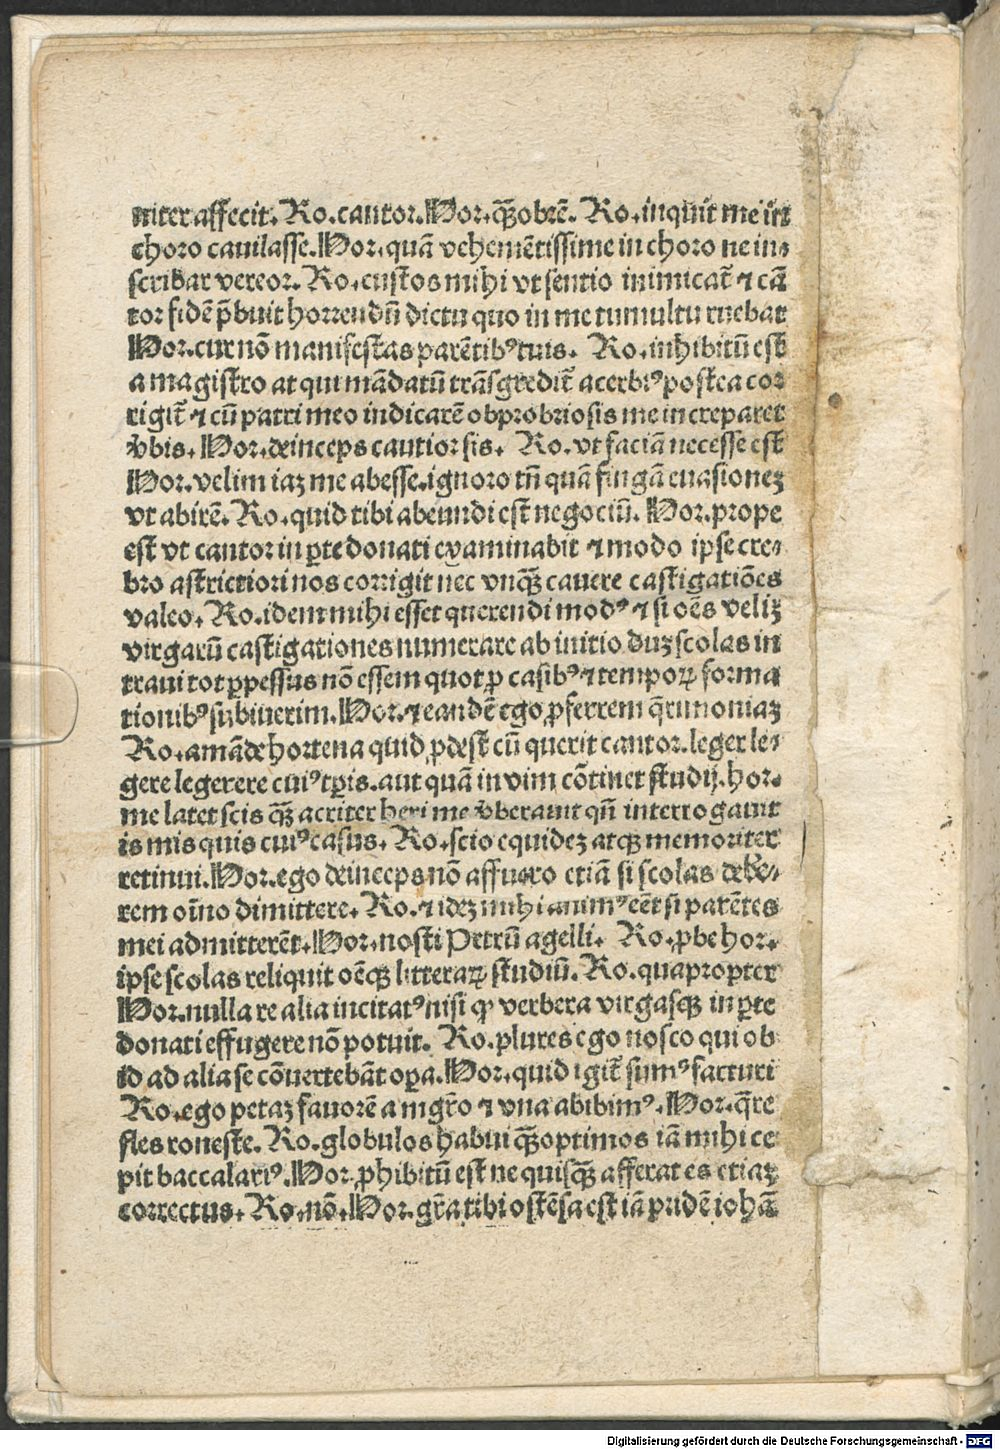 niter affecit. Ro. cantor. Hor. qȝobrē. Ro. inquit me in
choro cauilasse. Hor. quā vehemētissime in choro ne in⸗
scribar vereor. Ro. custos mihi vt sentio inimicat̄ ⁊ cā
tor fidē p̄buit horrendū dictu quo in me tumultu ruebat
Hor. cur nō manifestas parētibꝰ tuis. Ro. inhibitū est
a magistro at qui mādatū trāsgredit̄ acerbiꝰ postea cor
rigit̄ ⁊ cū patri meo indicarē obprobriosis me increparet
v̄bis. Hor. deinceps cautior sis. Ro. vt faciā necesse est
Hor. velim iaȝ me abesse. ignoro tn̄ quā fingā euasioneȝ
vt abirē. Ro. quid tibi abeundi est negociū. Hor. prope
est vt cantor in ꝑte donati examinabit ⁊ modo ipse cre⸗
bro astrictiori nos corrigit nec vnqȝ̄ cauere castigatiōes
valeo. Ro. idem mihi esset querendi modꝰ ⁊ si oēs veliȝ
virgarū castigationes numerare ab initio duȝ scolas in
traui tot ꝑpessus nō essem quot ꝓ casibꝰ ⁊ temporꝝ forma
tionibꝰ subiuerim. Hor. ⁊ eandē ego ꝓferrem q̄rimoniaȝ
Ro. amā de hortena quid ꝓdest cū querit cantor. leger le⸗
gere legerere cuiꝰ tꝑis. aut quā in vim cōtinet studij. hor.
me latet scis qȝ̄ acriter heri me v̄beraut qn̄ interrogauit
is mis quis cuiꝰ casus. Ro. scio equideȝ atqȝ memoriter
retinui. Hor. ego deinceps nō affuero etiā si scolas debe⸗
rem oīno dimittere. Ro. ⁊ ideȝ mihi animꝰ eēt si parētes
mei admitterēt. Hor. nosti Petrū agelli. Ro. ꝓbe hor.
ipse scolas reliquit oēqȝ litterarꝝ studiū. Ro. quapropter
Hor. nulla re alia incitatꝰ nisi ꝙ verbera virgasqȝ in ꝑte
donati effugere nō potuit. Ro. plures ego nosco qui ob
id ad alia se cōuertebāt oꝑa. Hor. quid igit̄ sumꝰ facturi
Ro. ego petaȝ fauorē a mgr̄o ⁊ vna abibimꝰ. Hor. q̄re
fles roneste. Ro. globulos habui qȝ̄ optimos iā mihi ce
pit baccalariꝰ. Hor. ꝓhibitū est ne quisqȝ̄ afferat es etiaȝ
correctus. Ro. nō. Hor. gr̄a tibi ostēsa est iā pridē iohā
Digitalisierung gefördert durch die Deutsche Forschungsgemeinschaft - DFG